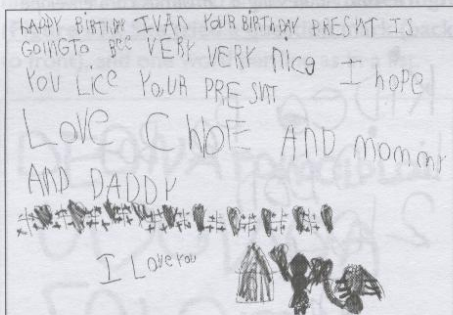 HAPPY BIRTHDAY IVAN YOUR BIRTHDAY PRESNT IS
GOINGTO BEE VERY VERY nice I hope
YOU LICE YOUR PRESNT
LOVE CHOE AND mommy
AND DADDY
I Love you